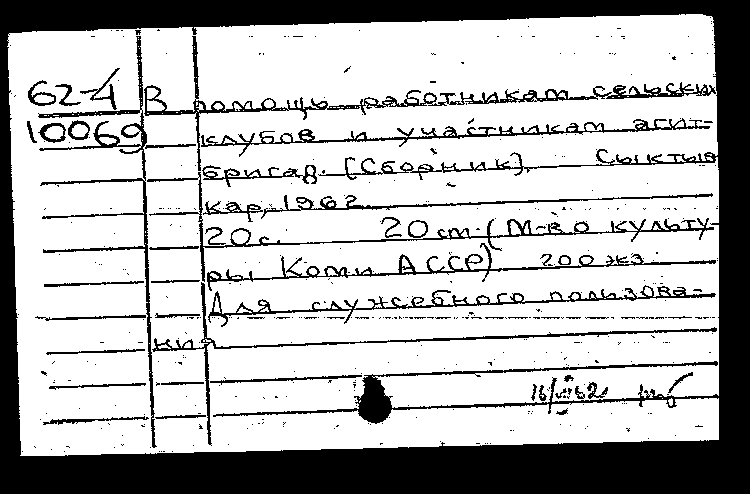 62-4 В помощь работникам сельских
10069 клубов и участникам агит-
бригад. [Сборник]. Сыктыв
кар, 1962.
20 с. 20 см. (М-во культу-
ры Коми АССР) 200 экз.
Для служебного пользова-
ния